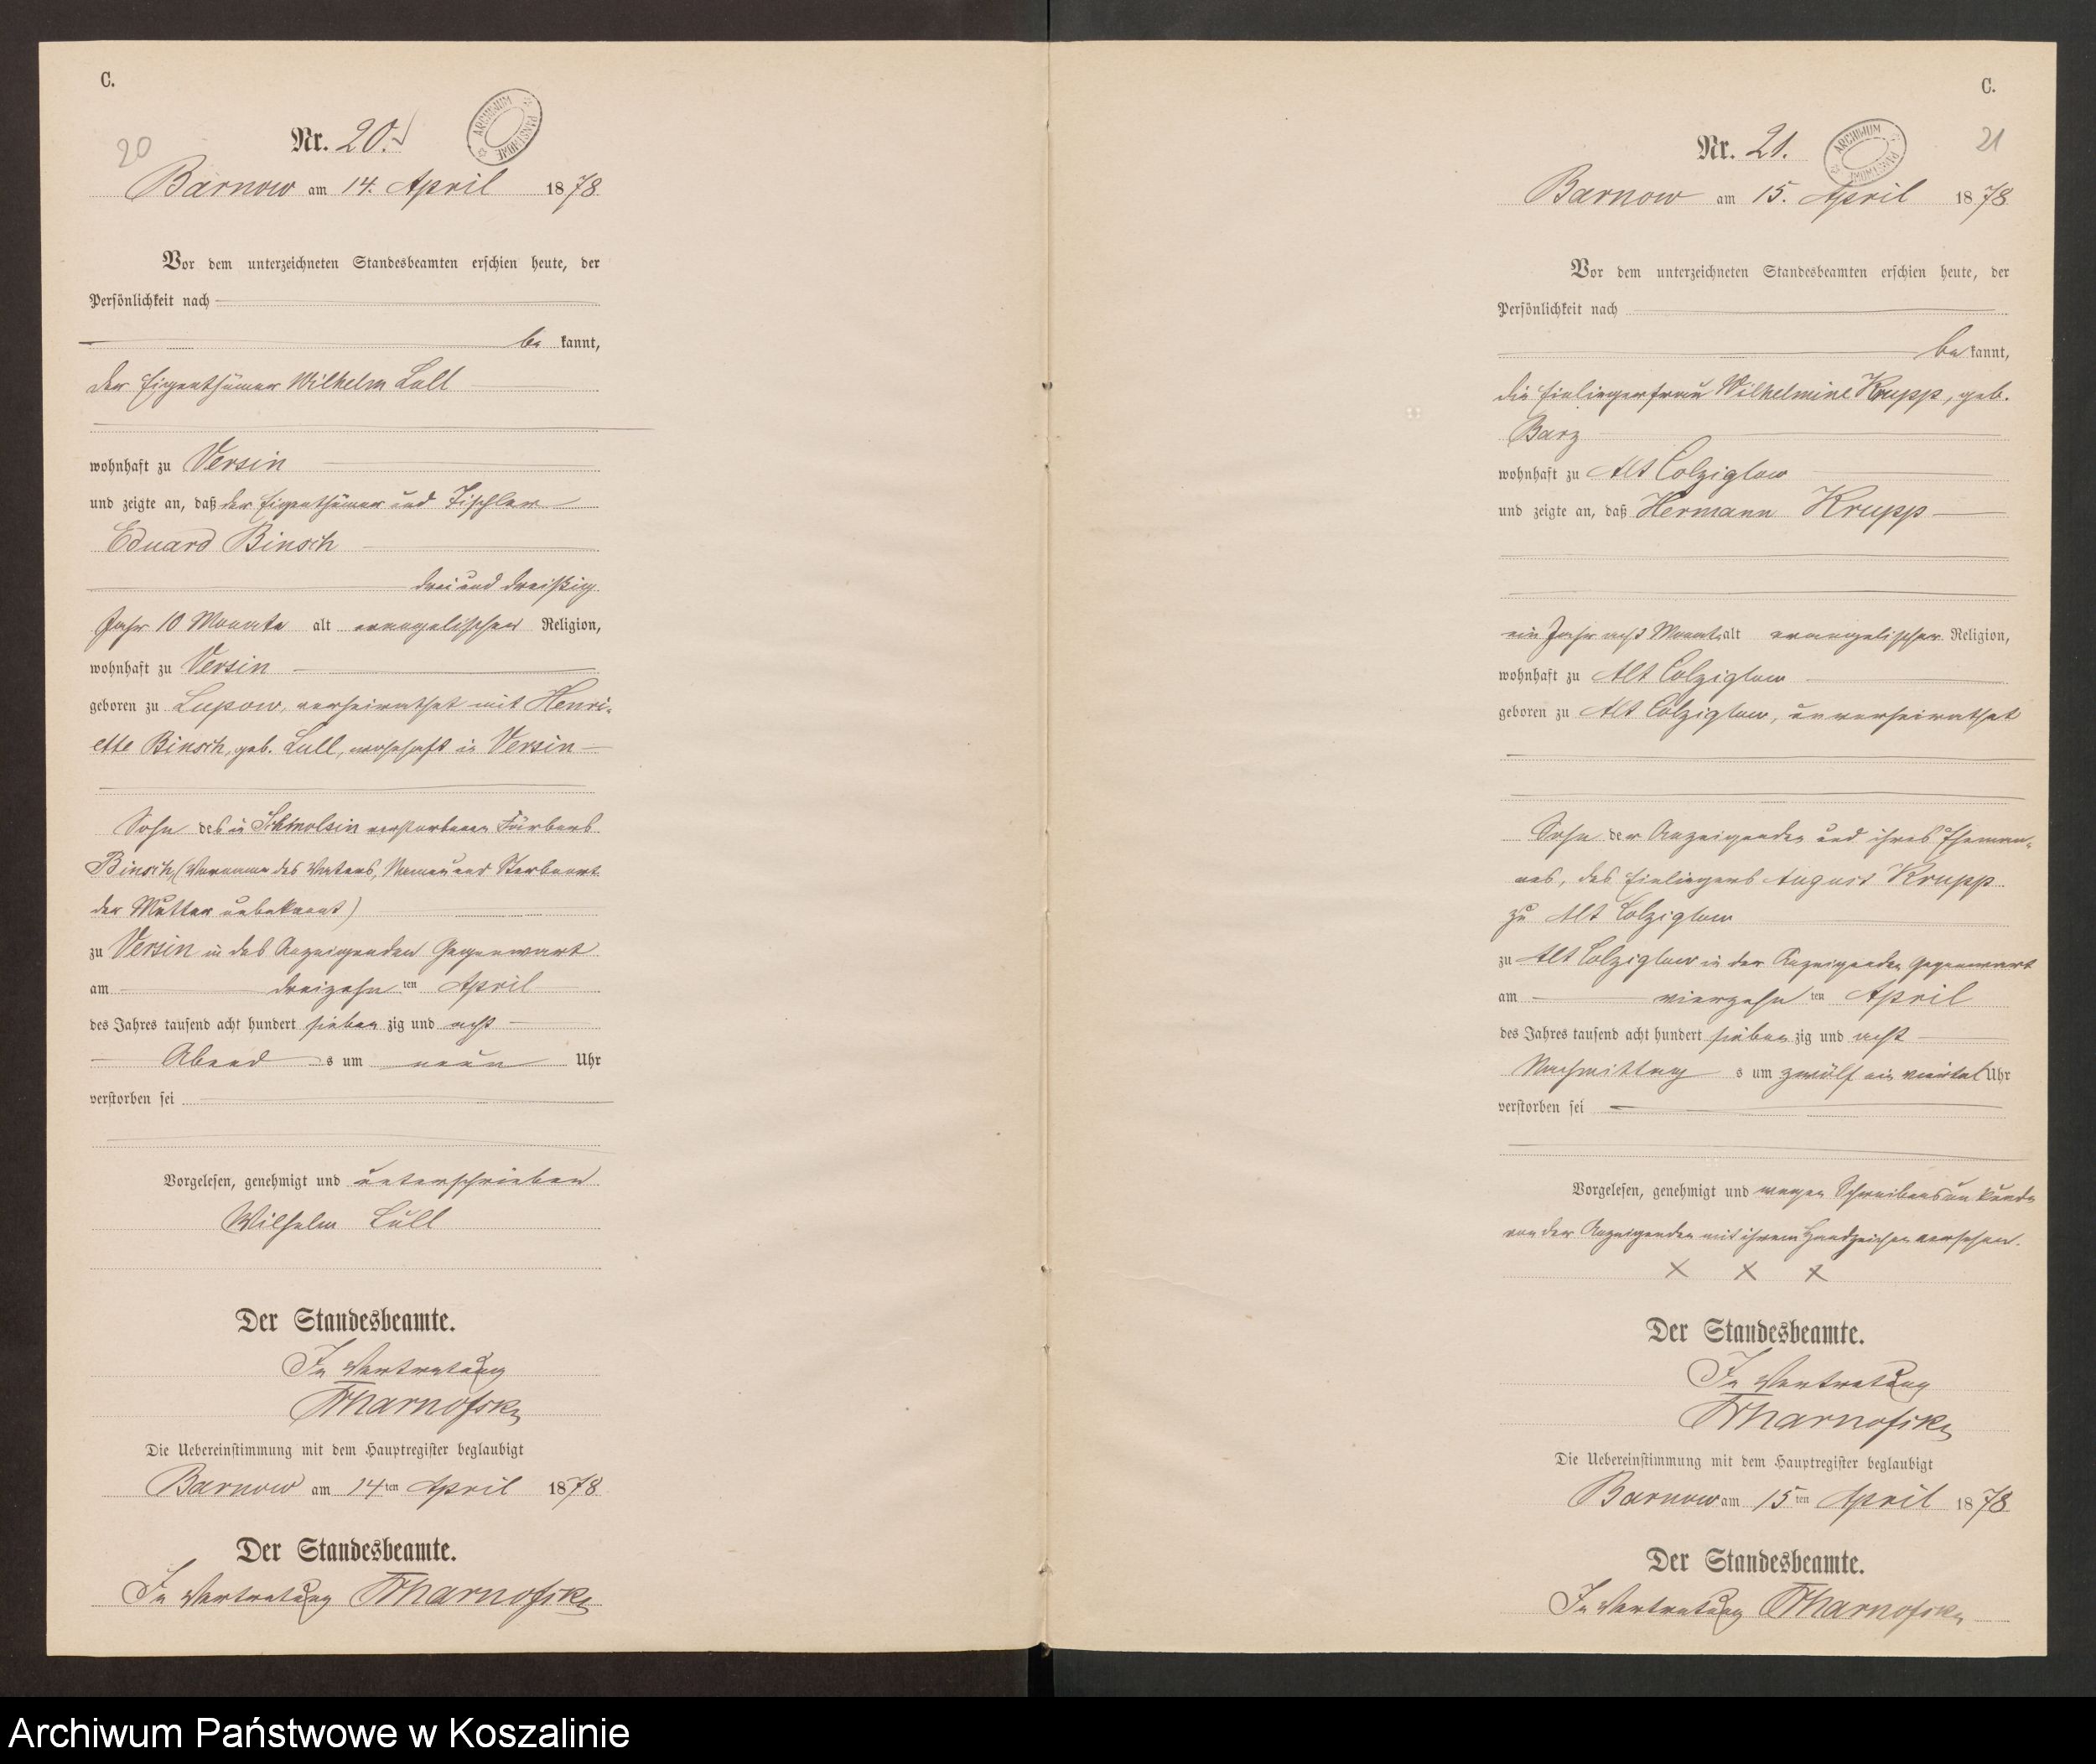 C.
20
Nr. 20.
ARCHIWUM PAŃSTWOWE
Barnow am 14. April 1878.
Vor dem unterzeichneten Standesbeamten erschien heute, der
Persönlichkeit nach
be kannt,
der Eigenthümer Wilhelm Lull
wohnhaft zu Versin
und zeigte an, daß der Eigenthümer und Tischler
Eduard Binsch
drei und dreißig
Jahr 10 Monate alt evangelischer Religion,
wohnhaft zu Versin
geboren zu Lupow, verheirathet mit Henri-
ette Binsch, geb. Lull, wohnhaft in Versin
Sohn des in Schmolsin verstorbenen Färbers
Binsch, (Vorname des Vaters, Namen und Sterbeort
der Mutter unbekannt)
zu Versin in des Anzeigenden Gegenwart
am dreizehn ten April
des Jahres tausend acht hundert sieben zig und acht
Abend s um neun Uhr
verstorben sei
Vorgelesen, genehmigt und unterschrieben
Wilhelm Lull
Der Standesbeamte.
In Vertretung
Die Uebereinstimmung mit dem Hauptregister beglaubigt
Barnow am 14ten April 1878
Der Standesbeamte.
In Vertretung
C.
21
Nr. 21.
ARCHIWUM PAŃSTWOWE
Barnow am 15. April 1878
Vor dem unterzeichneten Standesbeamten erschien heute, der
Persönlichkeit nach
be kannt,
die Einliegerfrau Wilhelmine Krupp, geb.
Barz
wohnhaft zu Alt Colziglow
und zeigte an, daß Hermann Krupp
ein Jahr acht Monat alt evangelischer Religion,
wohnhaft zu Alt Colziglow
geboren zu Alt Colziglow, unverheirathet
Sohn der Anzeigenden und ihres Eheman-
nes, des Einliegers August Krupp
zu Alt Colziglow
zu Alt Colziglow in der Anzeigenden Gegenwart
am vierzehn ten April
des Jahres tausend acht hundert sieben zig und acht
Nachmittag s um zwölf ein viertel Uhr
verstorben sei
Vorgelesen, genehmigt und wegen Schreibensunkunde
von der Anzeigenden mit ihrem Handzeichen versehen.
X X X
Der Standesbeamte.
In Vertretung
Die Uebereinstimmung mit dem Hauptregister beglaubigt
Barnow am 15ten April 1878
Der Standesbeamte.
In Vertretung
Archiwum Państwowe w Koszalinie